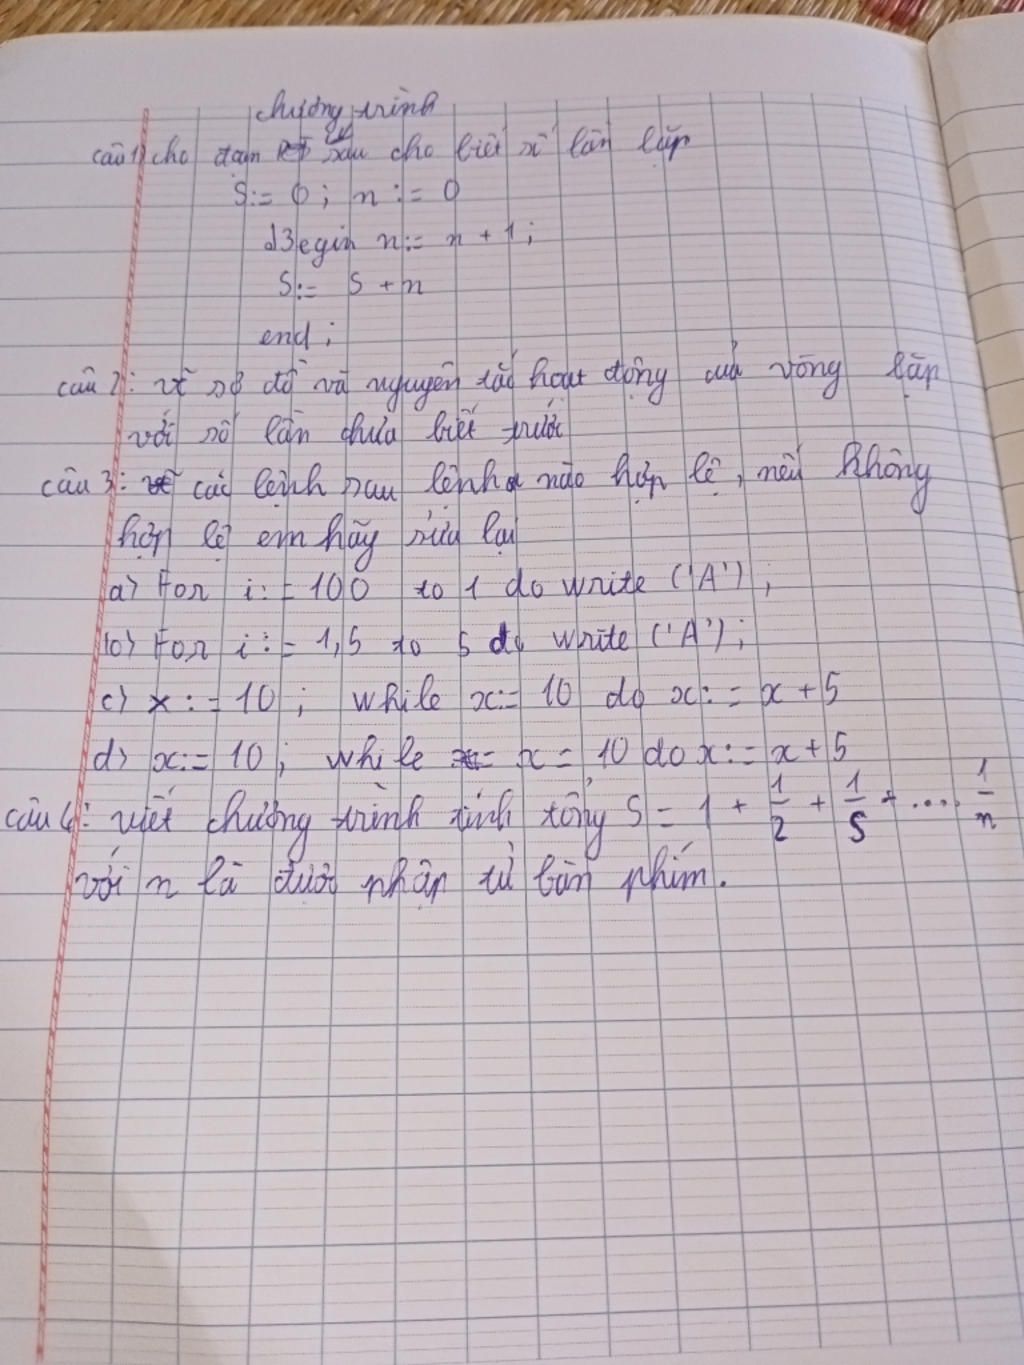 chương trình
câu 1) cho đoạn sau cho biết số lần lặp
S:= 0; n:= 0
Begin n:= n + 1;
S:= S + n
end;
câu 2: vẽ sơ đồ và nguyên tắc hoạt động của vòng lặp
với số lần chưa biết trước
câu 3: các lệnh sau lệnh nào hợp lệ, nếu không
hợp lệ em hãy sửa lại
a) For i:= 100 to 1 do write ('A');
b) For i:= 1,5 to 5 do write ('A');
c) x:= 10; while x:= 10 do x:= x + 5
d) x:= 10; while x = 10 do x:= x + 5
câu 4: viết chương trình tính tổng S = 1 + 1/2 + 1/5 + .... 1/n
với n là được nhập từ bàn phím.